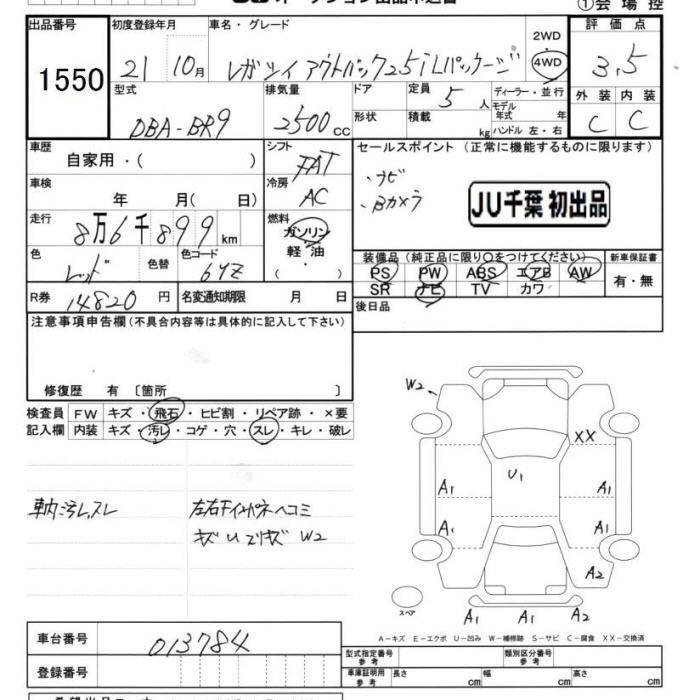 ①会場控
出品番号 初度登録年月 車名・グレード 2WD 評価点
1550 21 10月 レガシィ アウトバック2.5iLパッケージ 4WD 3.5
型式 排気量 ドア 定員 5 人 ディーラー・並行 外装 内装
DBA-BR9 2500 CC 形状 積載 kg モデル年式 年 ハンドル 左・右 C C
車歴 自家用・( ) シフト FAT セールスポイント (正常に機能するものに限ります)
車検 年 月( 日) 冷房 AC ・ナビ
・Bカメラ JU千葉 初出品
走行 8万6千899km 燃料 ガソリン
軽・油
( )
色 レッド 色替 色コード 64Z 装備品 (純正品に限り○をつけてください) 新車保証書
PS PW ABS エアB AW 有・無
SR ナビ TV カワ
R券 14820 円 名変通知期限 月 日 後日品
注意事項申告欄(不具合内容等は具体的に記入して下さい)
修復歴 有 〔箇所 〕
検査員 FW キズ・飛石・ヒビ割・リペア跡・×要
記入欄 内装 キズ・汚レ・コゲ・穴・スレ・キレ・破レ
車内汚レ,スレ 左右Fインナーパネヘコミ
W2
XX
U1
A1 A1
A1 A1
A2
スペア A1 A1 A1
A-キズ E-エクボ U-凹み W-補修跡 S-サビ C-腐食 XX-交換済
車台番号 013784
登録番号
型式指定番号 参考 類別区分番号 参考
車庫証明用 参考 長さ cm 幅 cm 高さ cm